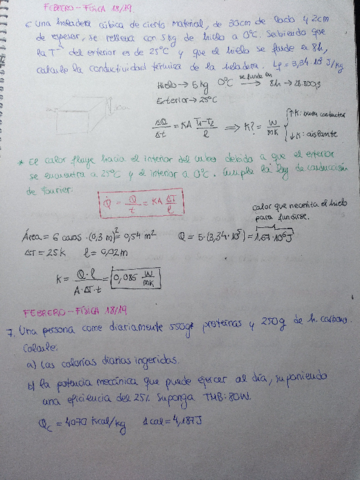 FEBRERO - FÍSICA 18/19
6. Una heladera cúbica de cierto material, de 30cm de lado y 2cm
de espesor, se rellena con 5kg de hielo a 0°C. Sabiendo que
la Tª del exterior es de 25°C y que el hielo se funde en 8h,
calcula la conductividad térmica de la heladera. Lf = 3,34·10⁵ J/kg
Hielo → 5kg 0°C se funde en → 8h → 28.800s
Exterior → 25°C
ΔQ/Δt = KA (T1-T2)/l ⇒ K? = W/mK
↑K: buen conductor
↓K: aislante
* El calor fluye hacia el interior del cubo debido a que el exterior
se encuentra a 25°C y el interior a 0°C. Cumple la ley de conducción
de Fourier.
Q̇ = Q/t = KA ΔT/l
calor que necesita el hielo
para fundirse.
Área = 6 caras · (0,3 m)² = 0,54 m² Q = 5·(3,34·10⁵) = 1,67·10⁶ J
ΔT = 25 K l = 0,02m
K = Q·l / A·ΔT·t = 0,086 W/mK
FEBRERO - FÍSICA 18/19
7. Una persona come diariamente 550g proteinas y 250g de h. carbono.
Calcule:
a) Las calorías diarias ingeridas.
b) la potencia mecánica que puede ejercer al día, suponiendo
una eficiencia del 25%. Suponga TMB: 80W.
Qc = 4070 Kcal/kg 1 cal = 4,187J